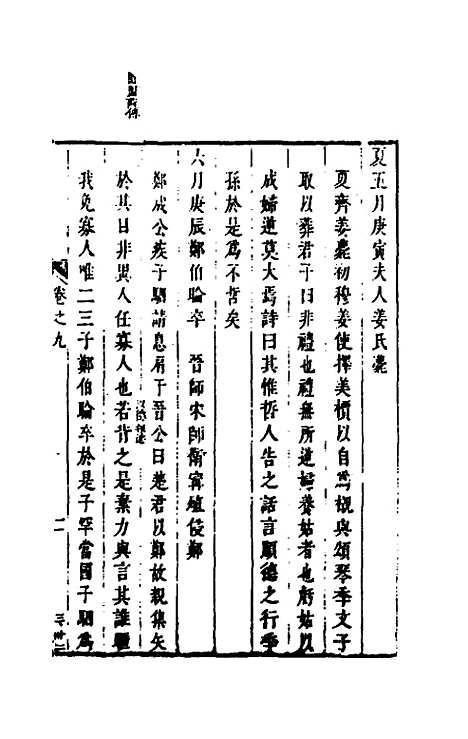 夏五月庚寅夫人姜氏薨
夏齊姜薨初穆姜使擇美檟以自為櫬與頌琴季文子
取以葬君子曰非禮也禮無所逆婦養姑者也虧姑以
成婦逆莫大焉詩曰其惟哲人告之話言順德之行季
孫於是為不哲矣
六月庚辰鄭伯睔卒 晉師宋師衛甯殖侵鄭
鄭成公疾子駟請息肩于晉公曰楚君以鄭故親集矢
於其目非異人任寡人也若背之是棄力與言其誰暱
我免寡人唯二三子鄭伯睔卒於是子罕當國子駟為
卷之九
二